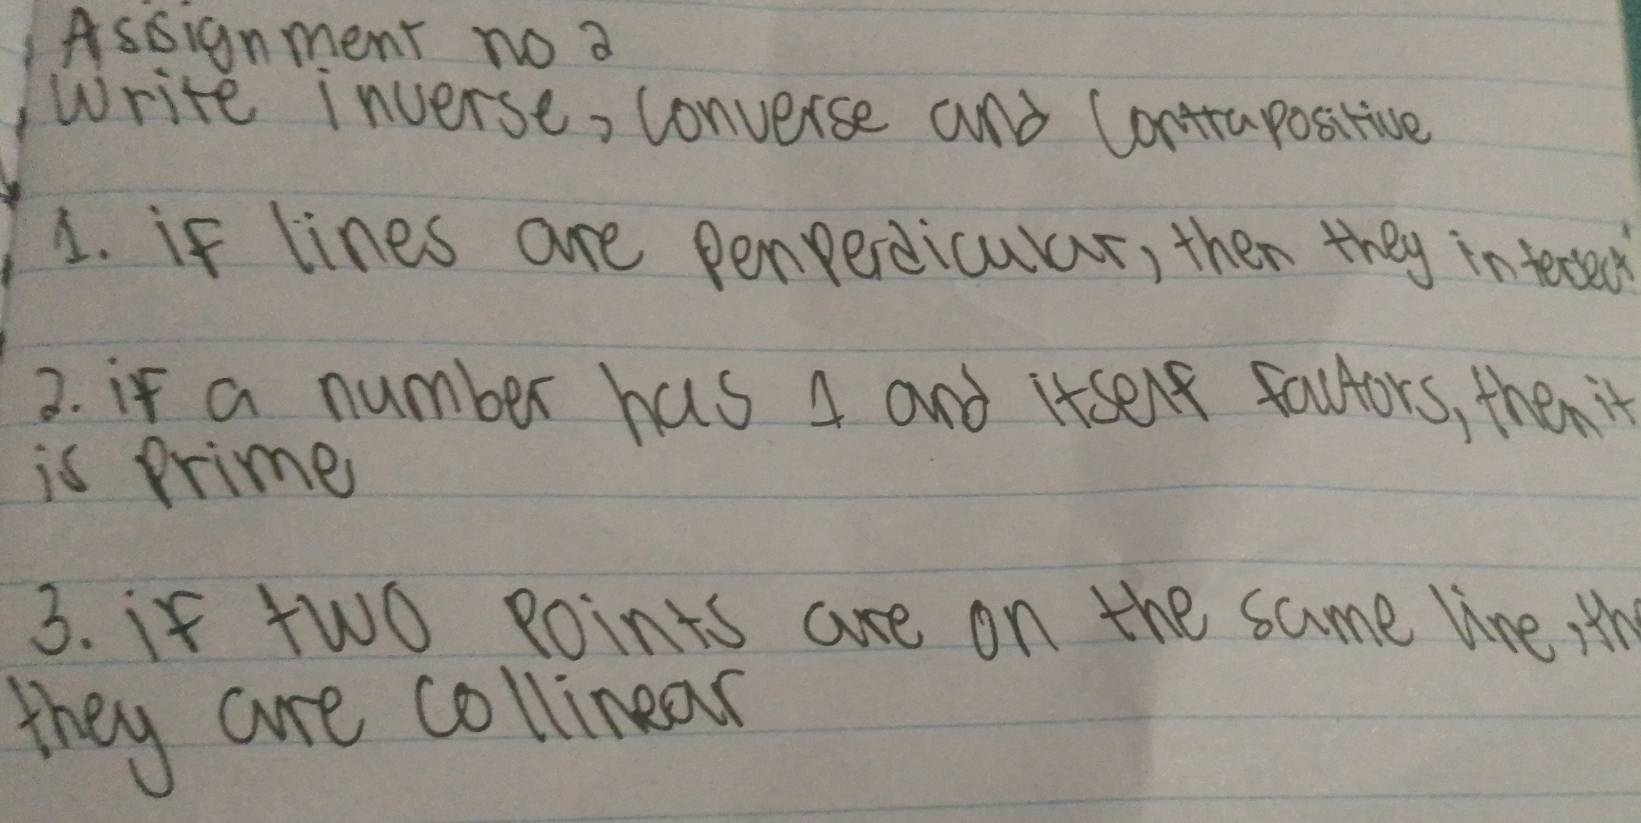 Assignment no 2
Write inverse, converse and Contrapositive
1. if lines are penperdicular, then they intersect
2. if a number has 1 and itself factors, then it
is prime
3. if two points are on the same line, the
they are collinear